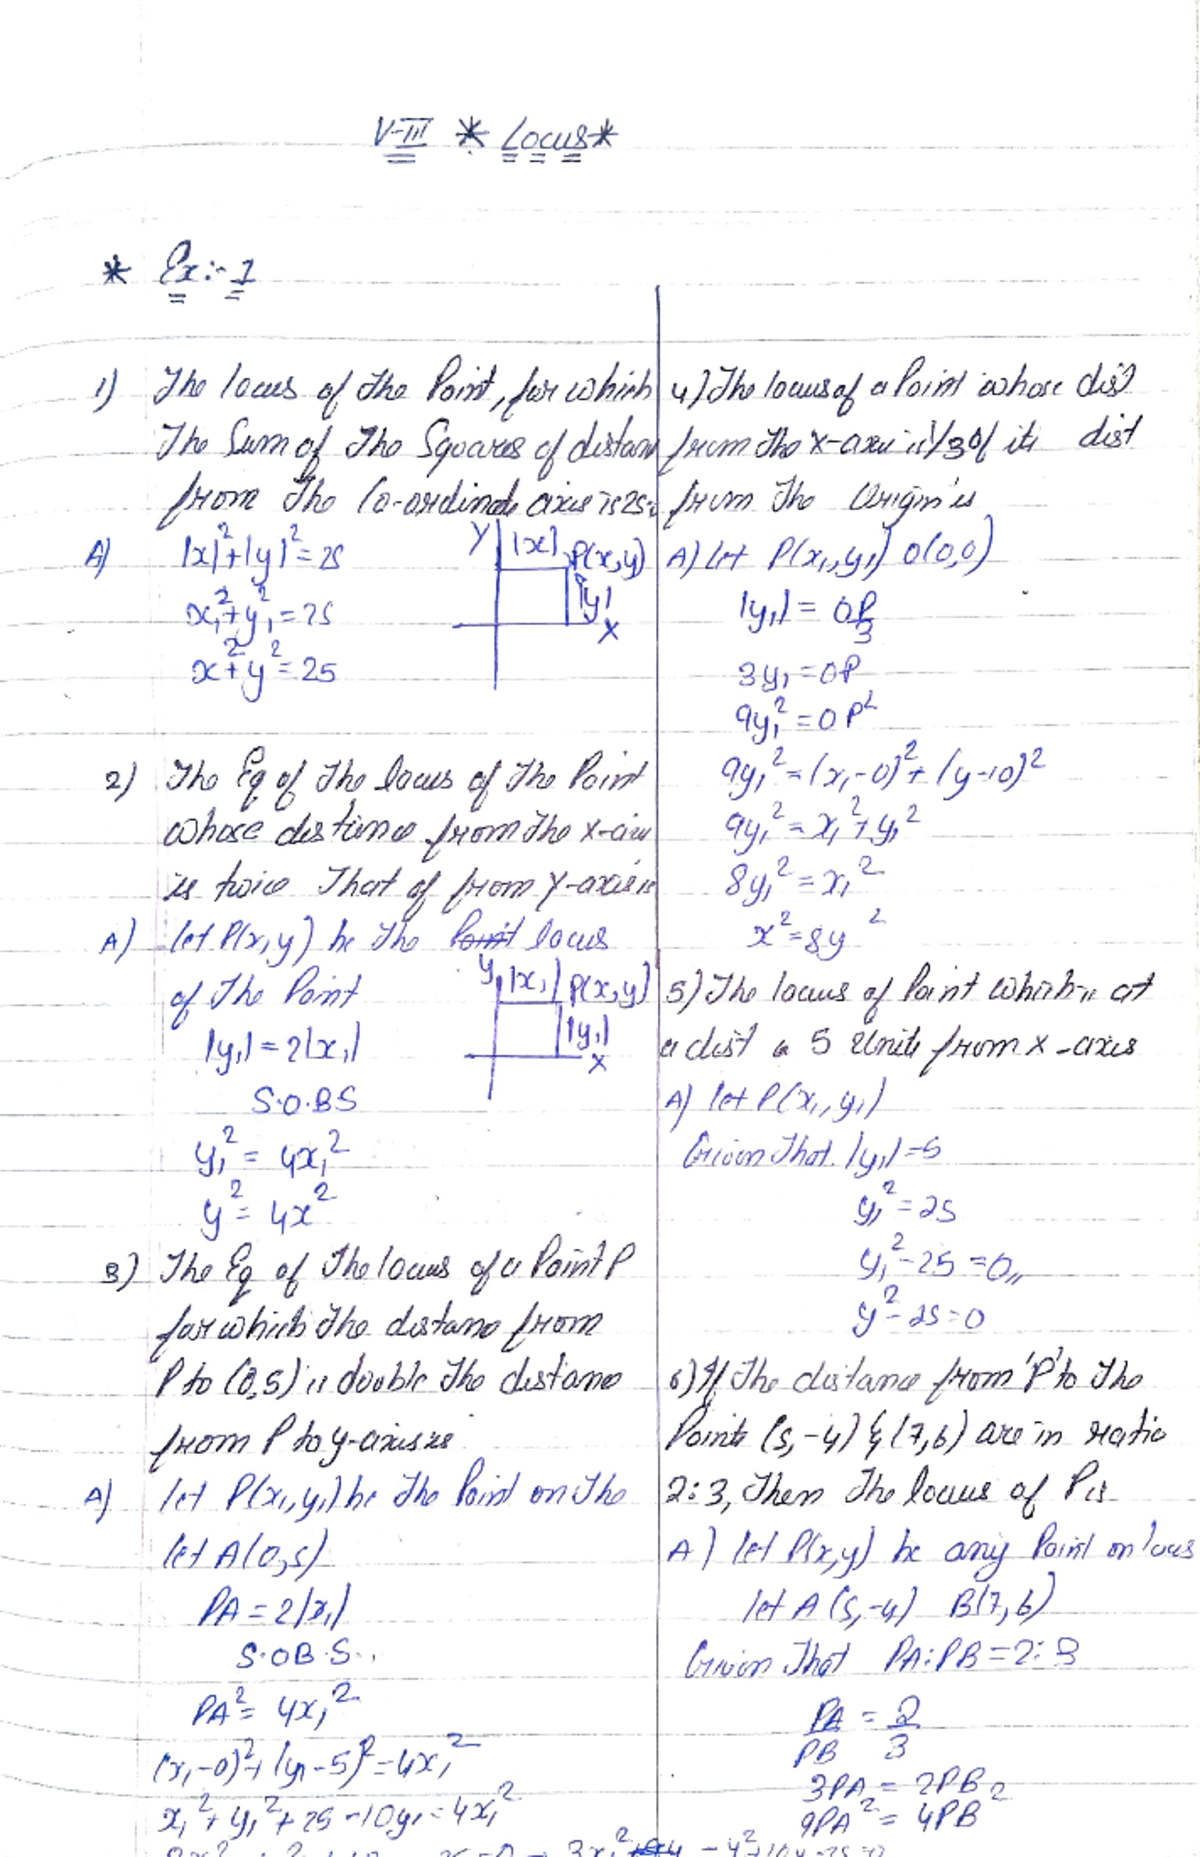 V-III * Locus *
* Ex:- 1
1) The locus of the Point, for which
The Sum of The Squares of distan
from The Co-ordinate axis is 25
A) |x|²+|y|²=25
x₁²+y₁²=25
x²+y²=25
Y |x| P(x,y)
|y|
X
2) The Eq of The locus of The Point
whose distance from The x-axi
is twice That of from Y-axis is
A) let P(x,y) be The Point locus
of The Point
|y₁|=2|x₁|
S.O.B.S
y₁² = 4x₁²
y² = 4x²
Y |x₁| P(x,y)
|y₁|
X
3) The Eq of The locus of a Point P
for which The distance from
P to (0,5) is double The distance
from P to y-axis is
A) let P(x₁,y₁) be The Point on The
let A(0,5)
PA = 2|x₁|
S.O.B.S.
PA² = 4x₁²
(x₁-0)²+(y₁-5)²=4x₁²
x₁²+y₁²+25-10y₁=4x₁²
4) The locus of a Point whose dist
from The x-axis is 1/3 of its dist
from The Origin is
A) let P(x₁,y₁) O(0,0)
|y₁| = OP/3
3y₁=OP
9y₁²=OP²
9y₁²=(x₁-0)²+(y-10)²
9y₁²=x₁²+y₁²
8y₁²=x₁²
x²=8y²
5) The locus of Point which is at
a dist 5 Units from x-axis
A) let P(x₁,y₁)
Given That |y₁|=5
y₁²=25
y₁²-25=0,,
y²-25=0
6) If The distance from 'P' to The
Points (5,-4) & (7,6) are in ratio
2:3, Then The locus of P is
A) let P(x,y) be any Point on locus
let A (5,-4) B(7,6)
Given That PA:PB=2:3
PA/PB = 2/3
3PA = 2PB
9PA² = 4PB²